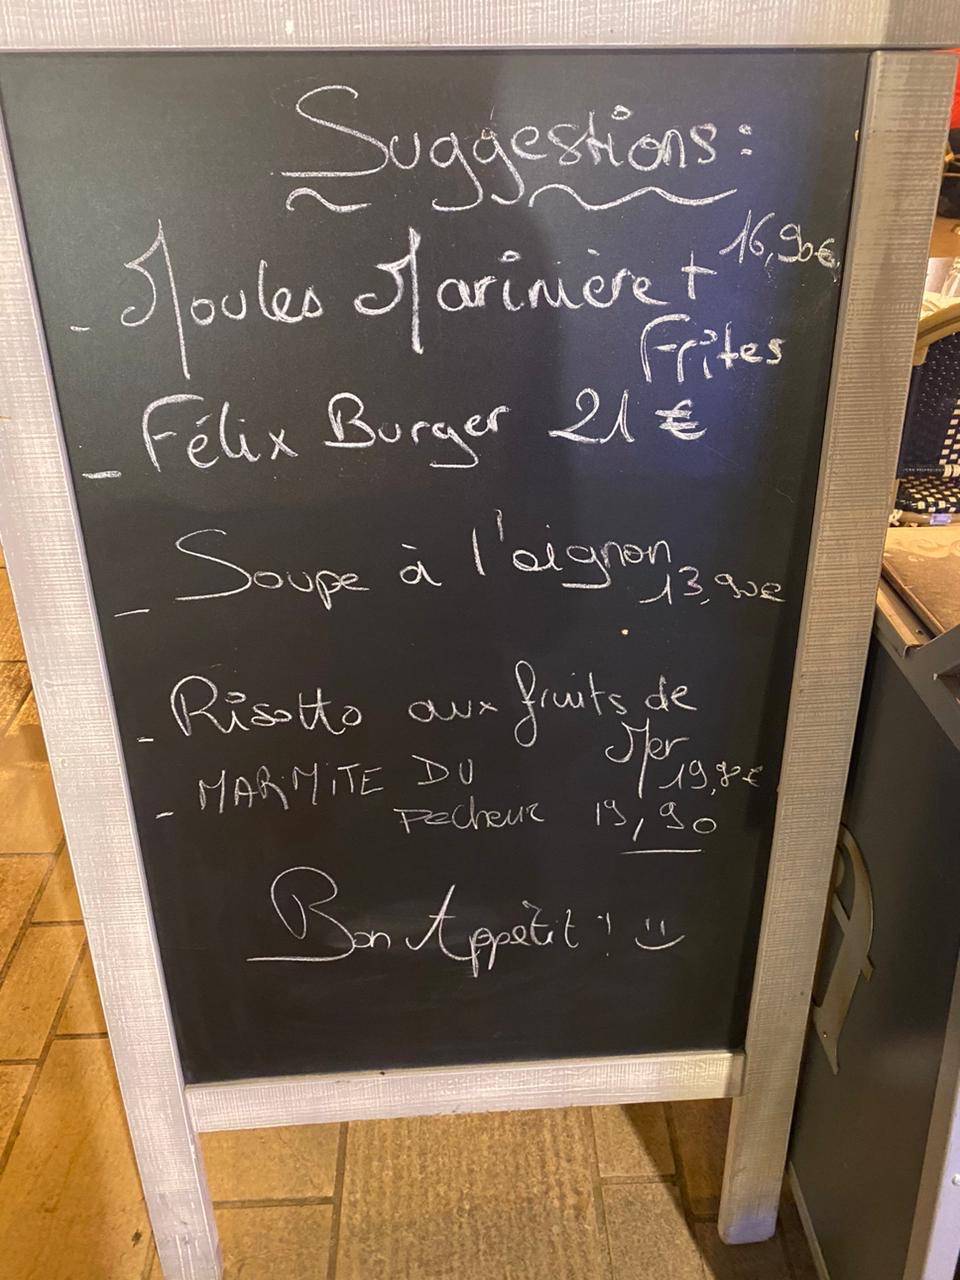 Suggestions:
- Moules Marinière + 16,90€
Frites
- Félix Burger 21 €
- Soupe à l'oignon 13,90€
- Risotto aux fruits de
Mer 19,90€
- MARMITE DU
Pecheur 19,90
Bon Appétit ! :)